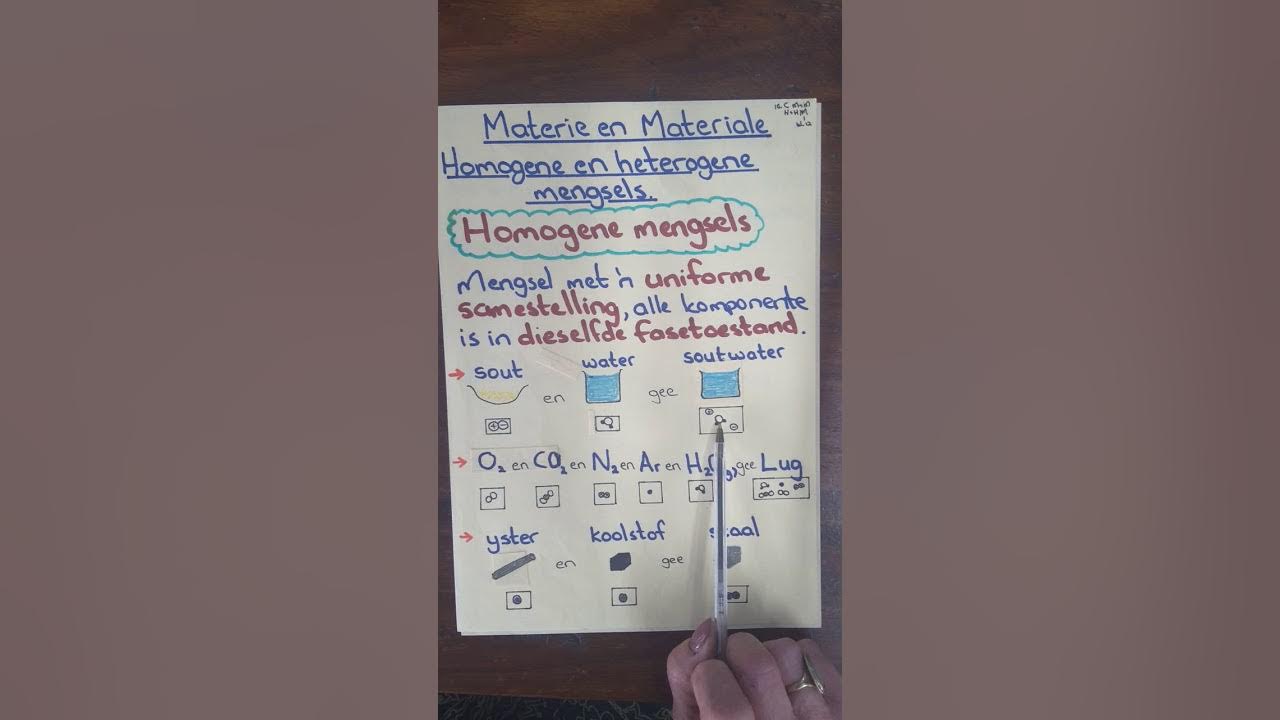 Materie en Materiale
Homogene en heterogene
mengsels.
Homogene mengsels
Mengsel met 'n uniforme
samestelling, alle komponente
is in dieselfde fasetoestand.
→ sout en water gee soutwater
→ O₂ en CO₂ en N₂ en Ar en gee Lug
→ yster en koolstof gee